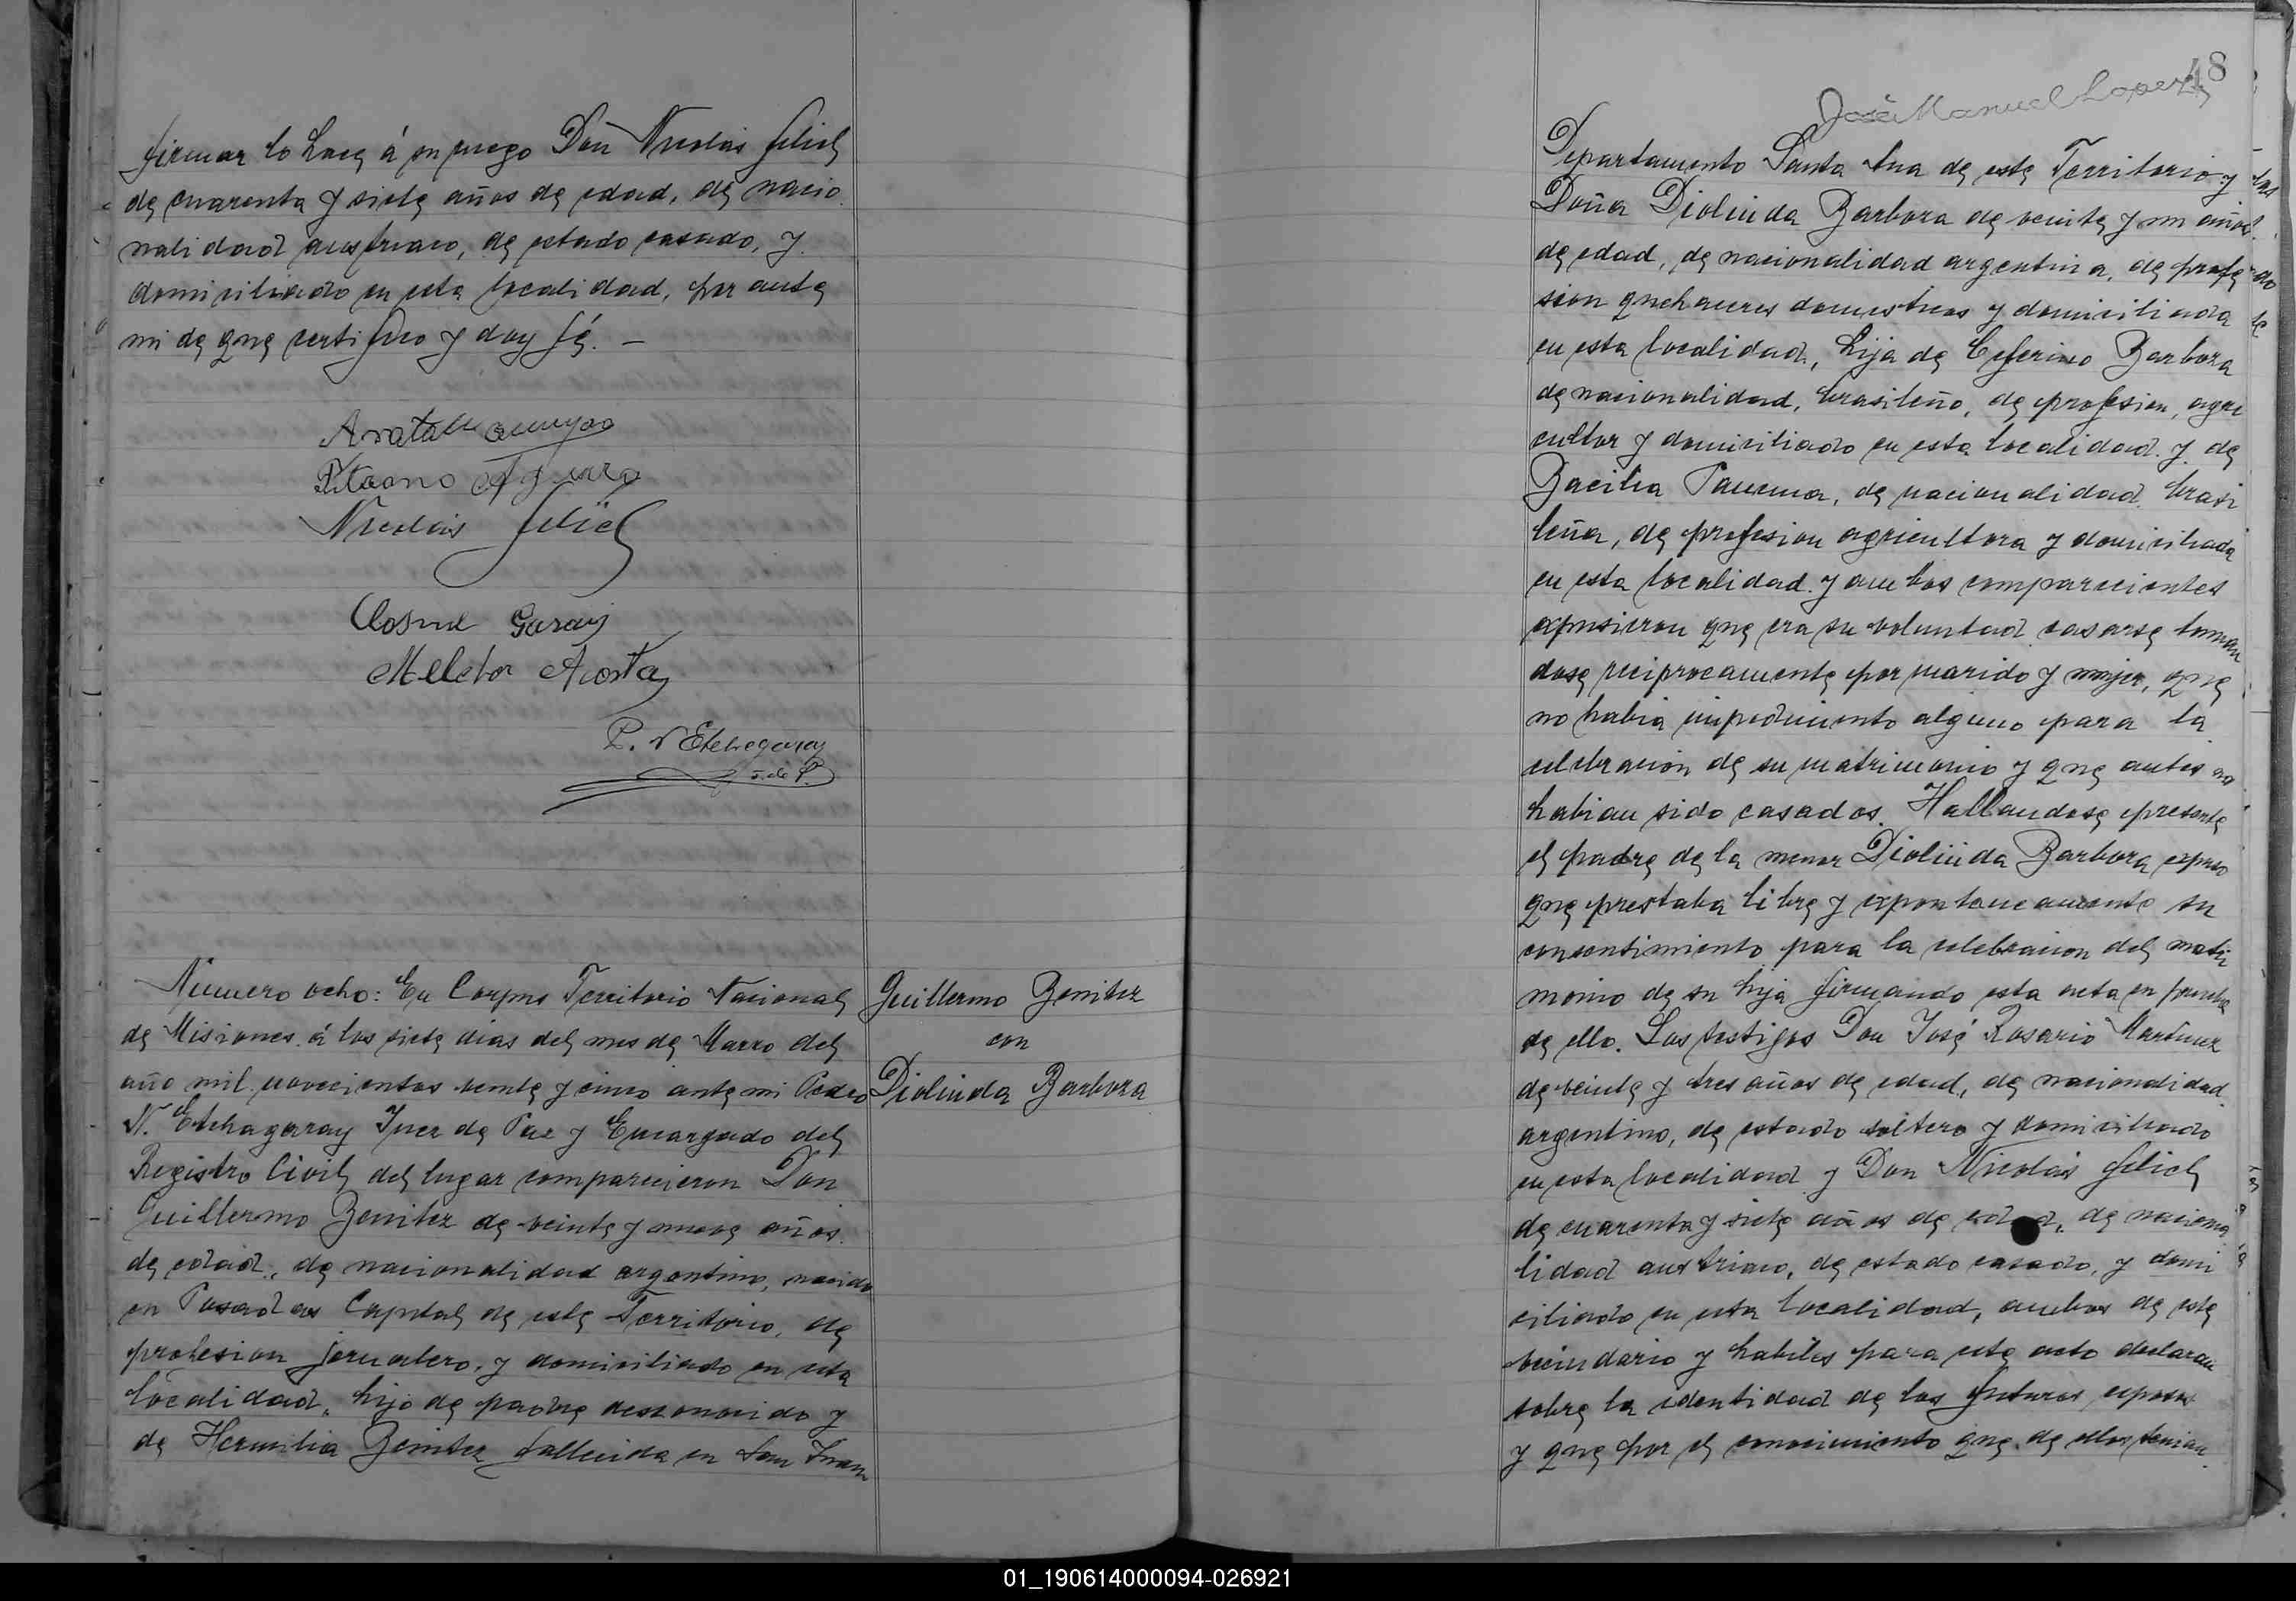 firmar lo hace á su ruego Don Nicolás Jelich
de cuarenta y siete años de edad, de nacio
nalidad austriaco, de estado casado, y
domiciliado en esta localidad, por ante
mi de que certifico y doy fé. —
Nicolás Jelich
Cosme Garay
Melchor Acosta
P. N Etchegaray
J. de P.
Número ocho: En Corpus Territorio Nacional
de Misiones á los siete dias del mes de Marzo del
año mil novecientos veinte y cinco ante mi Pedro
N. Etchegaray Juez de Paz y Encargado del
Registro Civil del lugar comparecieron Don
Guillermo Benitez de veinte y nueve años
de edad, de nacionalidad argentino, nacido
en Posadas Capital de este Territorio, de
profesion jornalero, y domiciliado en esta
localidad, hijo de padre desconocido y
de Hermilia Benitez fallecida en San Juan
Guillermo Benitez
con
Diolinda Barboza
48
José Manuel Lopez
Departamento Santa Ana de este Territorio y
Doña Diolinda Barboza de veinte y un años
de edad, de nacionalidad argentina, de profe
sion quehaceres domesticos y domiciliada
en esta localidad, hija de Ceferino Barboza
de nacionalidad, brasileño, de profesion, agri
cultor y domiciliado en esta localidad y de
Bacilia, de nacionalidad brasi
leña, de profesion agricultora y domiciliada
en esta localidad y ambos comparecientes
expusieron que era su voluntad casarse toman
dose reciprocamente por marido y mujer, que
no habia impedimento alguno para la
celebracion de su matrimonio y que antes no
habian sido casados. Hallandose presente
el padre de la menor Diolinda Barboza expuso
que prestaba libre y expontaneamente su
consentimiento para la celebracion del matri
monio de su hija firmando esta acta en prueba
de ello. Los testigos Don José Rosario Martinez
de veinte y tres años de edad, de nacionalidad
argentino, de estado soltero y domiciliado
en esta localidad y Don Nicolás Jelich
de cuarenta y siete años de edad, de naciona
lidad austriaco, de estado casado, y domi
ciliado en esta localidad, ambos de este
vecindario y habiles para este acto declaran
sobre la identidad de los futuros esposos
y que por el conocimiento que de ellos tenian
01_190614000094-026921